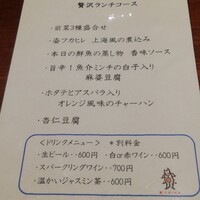 贅沢ランチコース
・前菜3種盛合せ
・姿フカヒレ 上海風の煮込み
・本日の鮮魚の蒸し物 香味ソース
・旨辛!魚介ミンチの白子入り
麻婆豆腐
・ホタテとアスパラ入り
オレンジ風味のチャーハン
・杏仁豆腐
<ドリンクメニュー> *別料金
・生ビール‥600円 ・白or赤ワイン‥600円
・スパークリングワイン‥700円
・温かいジャスミン茶‥600円